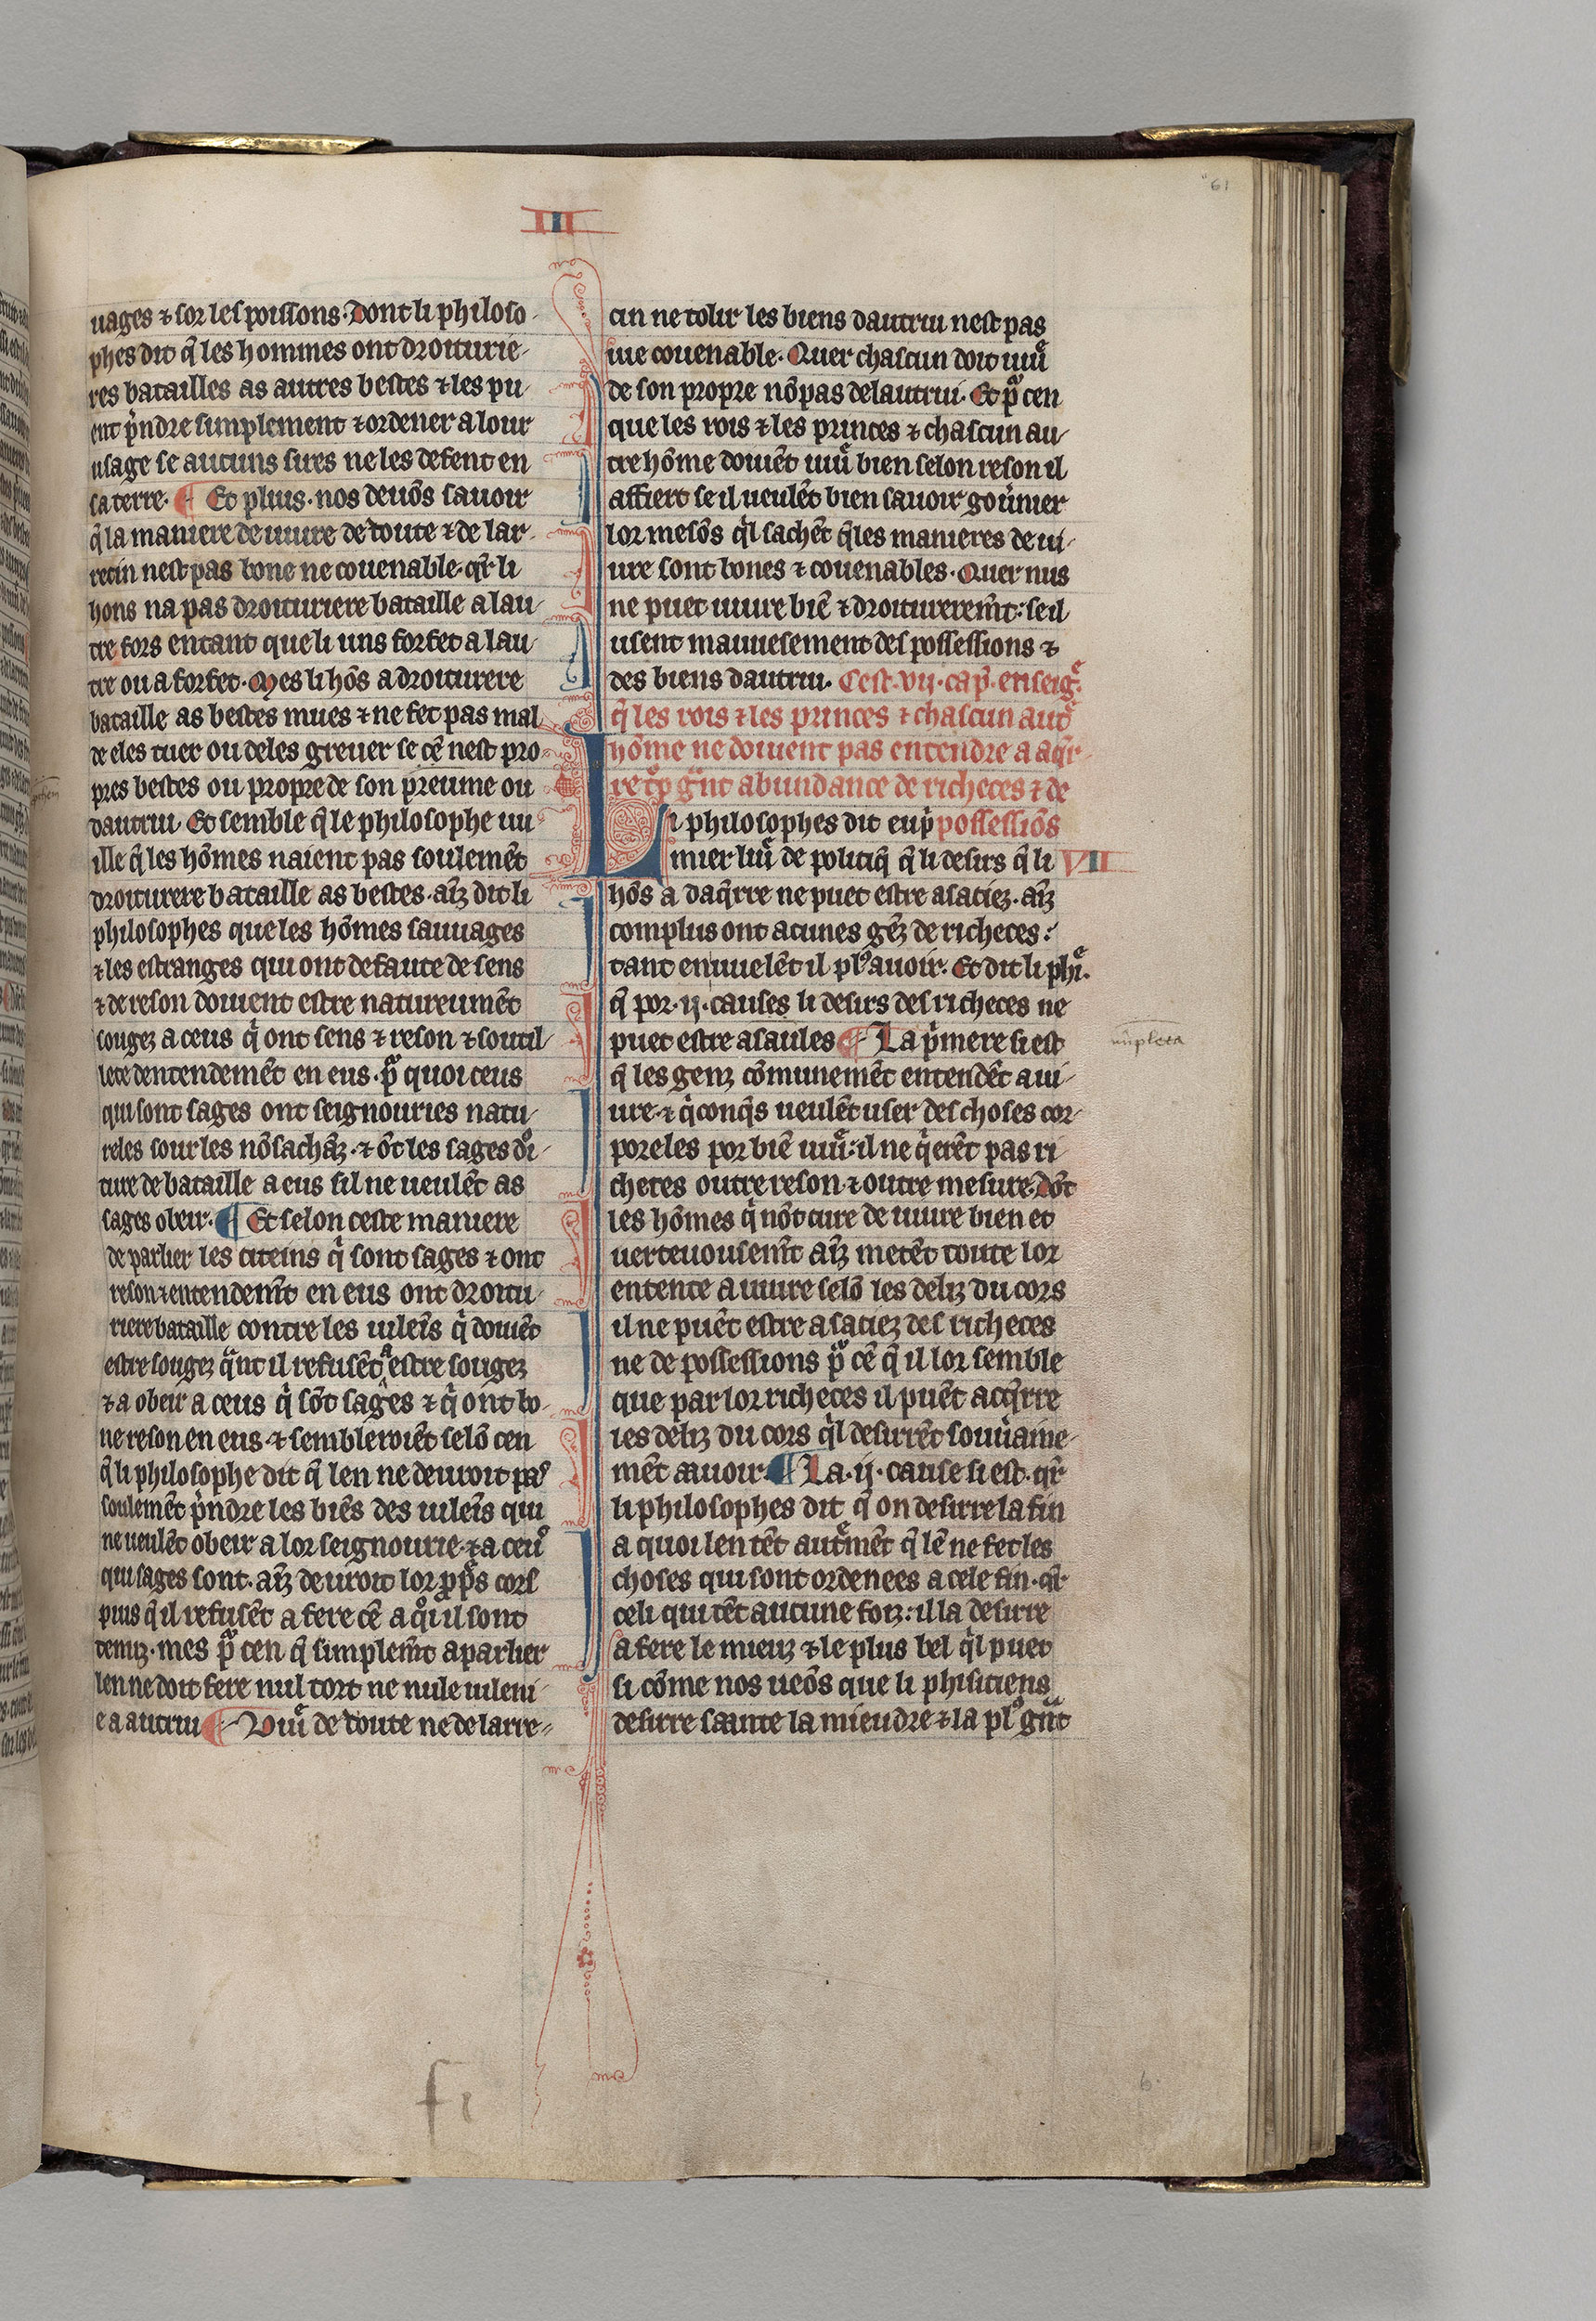 61
III
uages ⁊ sor les poissons. Dont li philoso-
phes dit q̃ les hommes ont droiturie-
res batailles as autres bestes ⁊ les pu-
ent p̃ndre simplement ⁊ ordener a lour
usage se aucuns sires ne les defent en
sa terre. ¶ Et plus. nos deuõs sauoir
q̃ la maniere de uiure de toute ⁊ de lar-
recin nest pas bone ne couenable. qr̃ li
hons na pas droituriere bataille a lau-
tre fors entant que li uns forfet a lau-
tre ou a forfet. Mes li hõs a droiturere
bataille as bestes mues ⁊ ne fet pas mal
de eles tuer ou deles greuer se cẽ nest pro-
pres bestes ou propre de son preume ou
dautrui. Et semble q̃ le philosophe uu-
ille q̃ les hõmes naient pas soulemẽt
droiturere bataille as bestes. aĩz dit li
philosophes que les hõmes sauuages
⁊ les estranges qui ont defaute de sens
⁊ de reson doiuent estre natureumẽt
sougez a ceus q̇ ont sens ⁊ reson ⁊ soutil-
lete dentendemẽt en eus. pͦ quoi ceus
qui sont sages ont seignouries natu-
reles sour les nõsachãz. ⁊ õt les sages dͦi-
ture de bataille a eus sil ne ueulẽt as
sages obeir. ¶ Et selon ceste maniere
de parlier les citeins q̇ sont sages ⁊ ont
reson ⁊ entendem̃t en eus ont droitu-
riere bataille contre les uileĩs q̇ doiuẽt
estre sougez qᷓnt il refusẽt a estre sougez
⁊ a obeir a ceus q̇ sõt sages ⁊ q̇ ont bo-
ne reson en eus. ⁊ sembleroiẽt selõ cen
q̃ li philosophe dit q̃ len ne deuroit paꝰ
soulemẽt p̃ndre les biẽs des uileĩs qui
ne ueulẽt obeir a lor seignourie. ⁊ a ceuꝰ
qui sages sont. aĩz deuroit lor pp̃s cors
puis q̃ il refusẽt a fere cẽ a qͦi il sont
tenuz. mes pͦ cen q̃ simplem̃t a parlier
len ne doit fere nul tort ne nule uileni-
e a autrui ¶ Viur̃ de toute ne de larre-
cin ne tolir les biens dautrui nest pas
uie couenable. Quer chascun doit uiur̃
de son propre nõ pas de lautrui. Et pͦ cen
que les rois ⁊ les princes ⁊ chascun au-
tre hõme doiuẽt uiur̃ bien selon reson il
affiert se il ueulẽt bien sauoir gou̾ner
lor mesõs q̇l sachẽt q̃ les manieres de ui-
ure sont bones ⁊ couenables. Quer nus
ne puet uiure biẽ ⁊ droiturerem̃t: se il
usent mauuesement des possessions ⁊
des biens dautrui. Cest. vij. cap̃. enseig̃.
q̃ les rois ⁊ les princes ⁊ chascun aut̃
hõme ne doiuent pas entendre a aqr̃-
re tͦp gᷓnt abundance de richeces ⁊ de
Li philosophes dit eu p̃ possessiõs
mier liur̃ de politiq̃ q̃ li desirs q̃ li VII
hõs a daq̃rre ne puet estre asaciez. aĩz
com plus ont acunes gẽz de richeces:
tant en uuelẽt il plꝰ auoir. Et dit li phĩ.
q̃ por .ij. causes li desirs des richeces ne
puet estre asaules ¶ La p̃mere si est
q̃ les genz cõmunemẽt entendẽt a ui-
ure. ⁊ q̇conq̃s ueulẽt user des choses cor-
poreles por biẽ uiur̃: il ne q̇erẽt pas ri-
checes outre reson ⁊ outre mesure. Dõt
les hõmes q̇ nõt cure de uiure bien et
uertuousem̃t aĩz metẽt toute lor
entente a uiure selõ les deliz du cors
il ne puẽt estre asaciez des richeces
ne de possessions pͦ cẽ q̃ il lor semble
que par lor richeces il puẽt acq̃rre
les deliz du cors q̇l desirrẽt souuᷓaine-
mẽt auoir ¶ La .ij. cause si est. qr̃
li philosophes dit q̃ on desirre la fin
a quoi len tẽt autrem̃t q̃ lẽ ne fet les
choses qui sont ordenees a cele fin. qr̃
celi qui tẽt aucune forz: il la desirre
a fere le mieuz ⁊ le plus bel q̇l puet
si cõme nos ueõs que li phisiciens
desirre sante la mieudre ⁊ la plꝰ gᷓnt